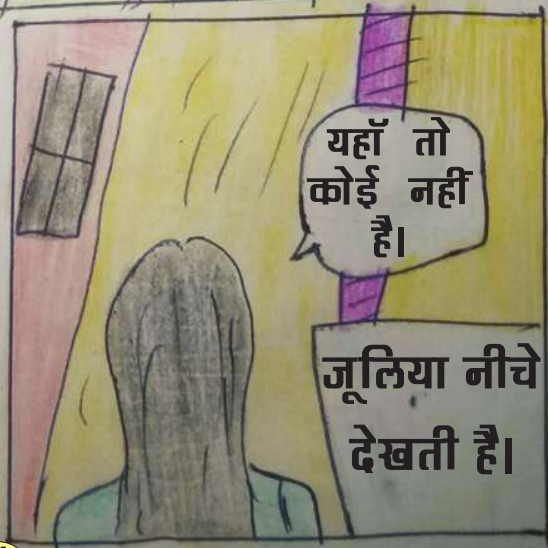 यहाॅ तो
कोई नहीं
है।
जूलिया नीचे
देखती है।